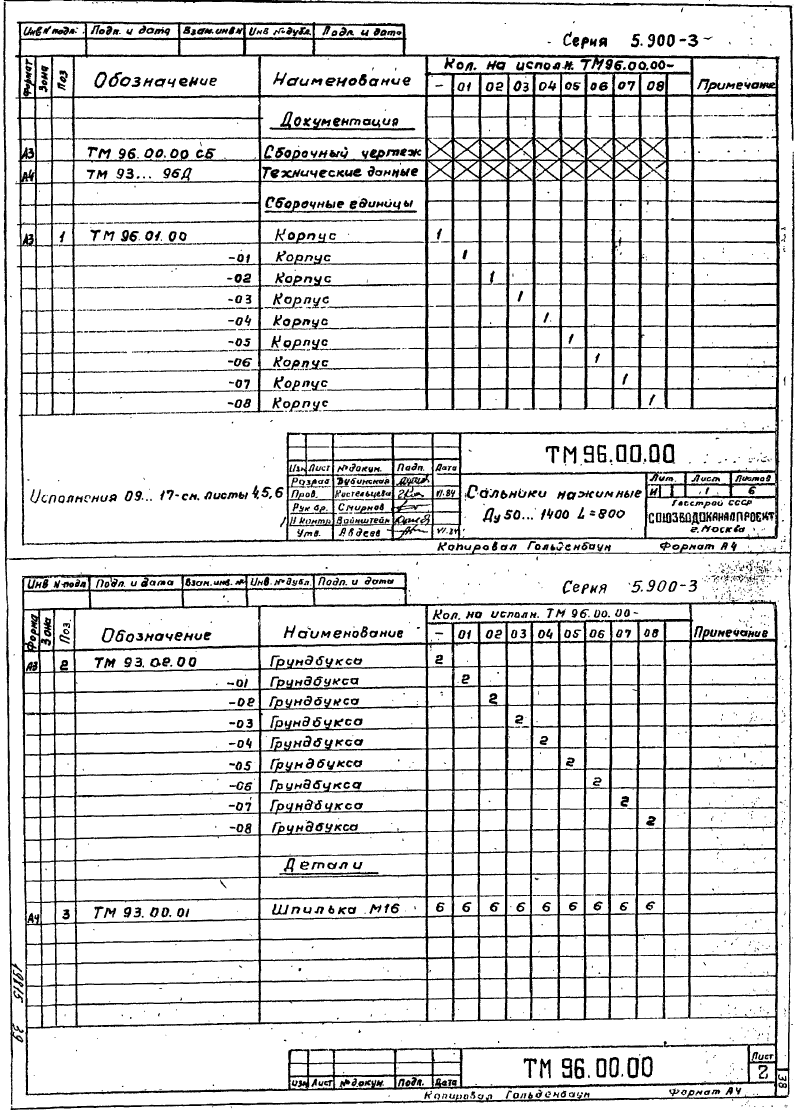 Инв № подл. Подп. и дата Взам. инв № Инв № дубл. Подп. и дата
Серия 5.900-3
Формат Зона Поз Обозначение Наименование Кол. на исполн. ТМ96.00.00- Примечание
- 01 02 03 04 05 06 07 08
Документация
А3 ТМ 96.00.00 СБ Сборочный чертеж
А4 ТМ 93... 96Д Технические данные
Сборочные единицы
А3 1 ТМ 96.01.00 Корпус 1
-01 Корпус 1
-02 Корпус 1
-03 Корпус 1
-04 Корпус 1
-05 Корпус 1
-06 Корпус 1
-07 Корпус 1
-08 Корпус 1
Исполнения 09... 17-см. листы 4,5,6
ТМ 96.00.00
Изм Лист № докум. Подп. Дата
Разраб Дубинская
Пров. Костельцева VI.84
Рук бр. Смирнов
Н контр Вайнштейн
Утв. Авдеев VI.84
Сальники нажимные
Ду 50... 1400 L=800
Лит. Лист Листов
И 1 6
Госстрой СССР
СОЮЗВОДОКАНАЛПРОЕКТ
г. Москва
Копировал Гольденбаун Формат А4
Инв № подл Подп. и дата Взам. инв. № Инв. № дубл. Подп. и дата
Серия 5.900-3
Форма Зона Поз. Обозначение Наименование Кол. на исполн. ТМ 96.00.00- Примечание
- 01 02 03 04 05 06 07 08
А3 2 ТМ 93.02.00 Грундбукса 2
-01 Грундбукса 2
-02 Грундбукса 2
-03 Грундбукса 2
-04 Грундбукса 2
-05 Грундбукса 2
-06 Грундбукса 2
-07 Грундбукса 2
-08 Грундбукса 2
Детали
А4 3 ТМ 93.00.01 Шпилька М16 6 6 6 6 6 6 6 6 6
19815 39
ТМ 96.00.00
Лист
2
Изм Лист № докум. Подп. Дата
38
Копировал Гольденбаун Формат А4